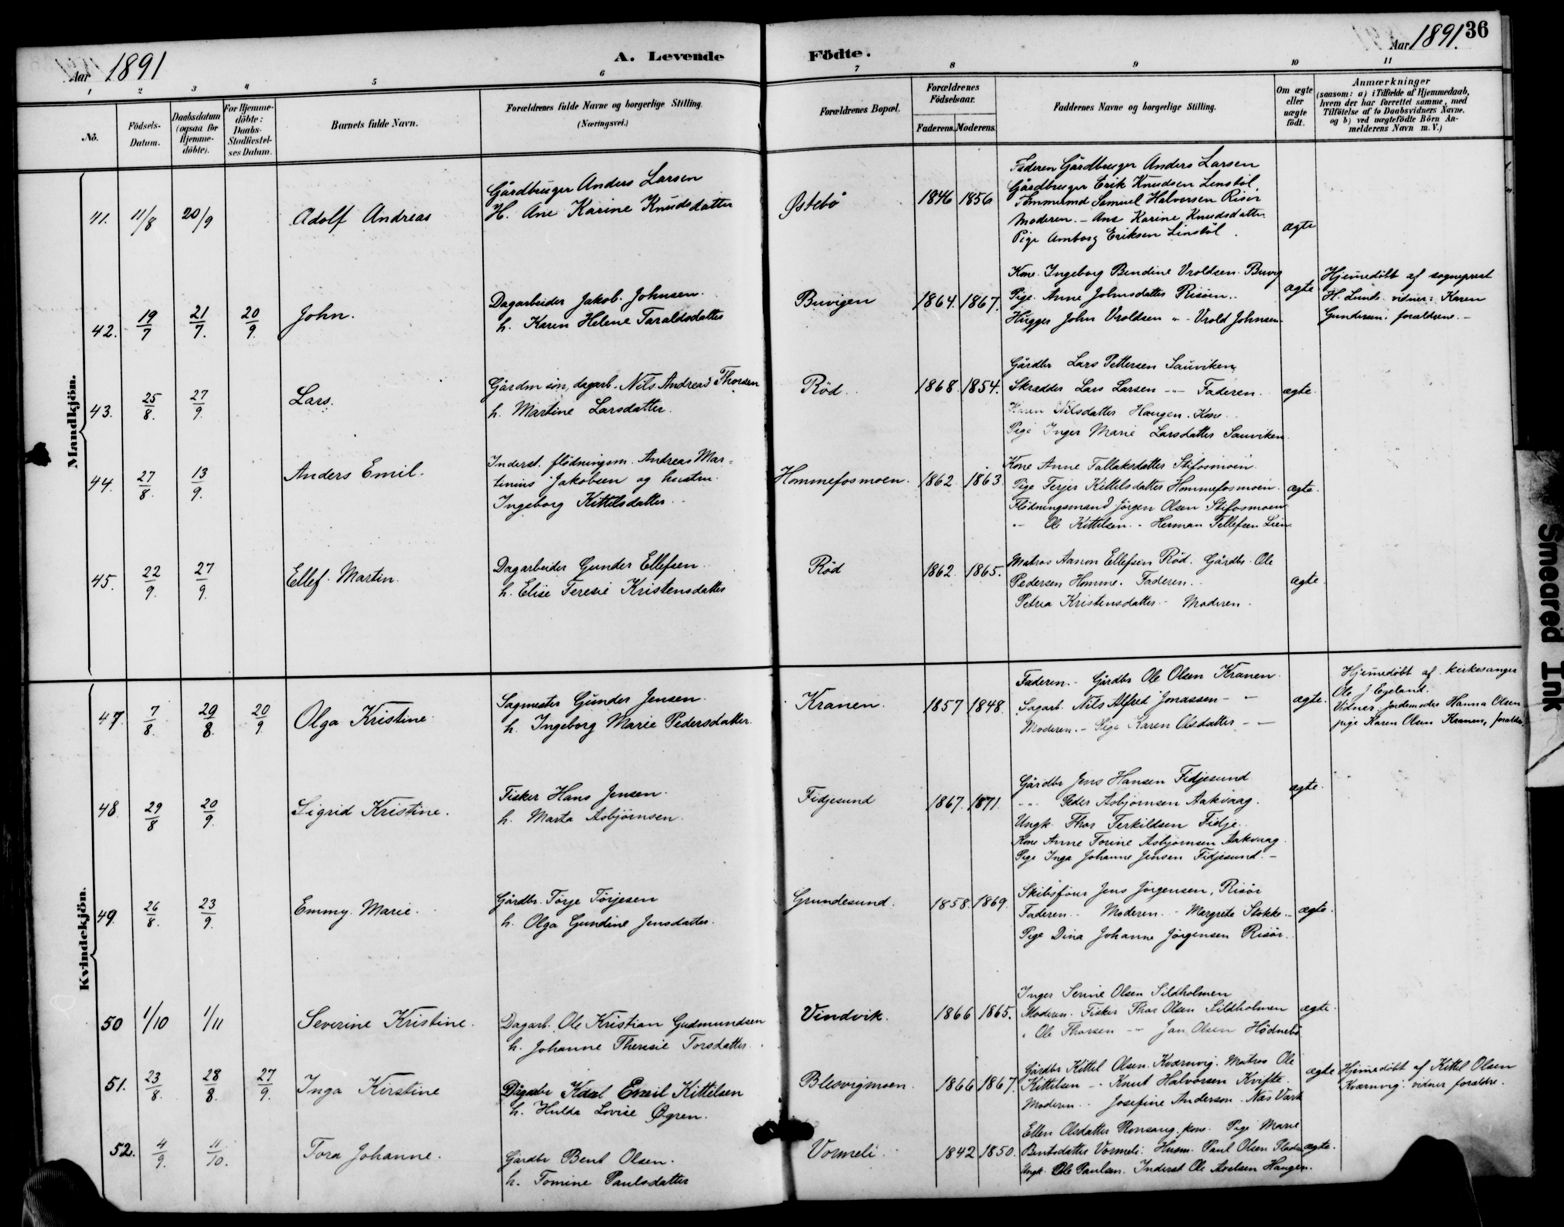 Aar 1891
A. Levende Födte.
Aar 1891. 36
1 2 3 4 5 6 7 8 9 10 11
No.
Födsels-Datum.
Daabsdatum (ogsaa for Hjemme-döbte).
For Hjemme-döbte: Daabs-Stadfæstel-ses Datum.
Barnets fulde Navn.
Forældrenes fulde Navne og borgerlige Stilling.
(Næringsvei.)
Forældrenes Bopæl.
Forældrenes Födselsaar.
Faderens. Moderens.
Faddernes Navne og borgerlige Stilling.
Om ægte eller uægte födt.
Anmærkninger
(saasom: a) i Tilfælde af Hjemmedaab, hvem der har forrettet samme, med Tilföielse af to Daabsvidners Navne, og b) ved uægtefödte Börn An-melderens Navn m. V.)
Mandkjön.
41. 11/8 20/9 Adolf Andreas
Gårdbruger Anders Larsen
H. Ane Karine Knudsdatter
Østebö 1846 1856
Faderen Gårdbruger Anders Larsen
Gårdbruger Erik Knudsen Linstöl.
Tömmermd Samuel Halvorsen Risör
Moderen. - Ane Karine Knudsdatter
Pige Amborg Eriksen Linstöl.
ægte
42. 19/7 21/7. 20/9. John.
Dagarbeider Jakob Johnsen.
h. Karen Helene Taraldsdatter
Buvigen 1864. 1867.
Kone Ingeborg Bendine Vroldsen. Buvig
Pige Anne Johnsdatter Risöen.
Hugger John Vroldsen - Vrold Johnsen
ægte
Hjemmedöbt af sogneprest
H. Lund. vidner: Karen
Gundersen. forældrene. -
43. 25/8. 27/9. Lars.
Gårdm sön, dagarb. Nils Andreas Thorsen
h. Martine Larsdatter.
Röd. 1868. 1854.
Gårdbr Lars Pettersen Sauviken
Skrædder Lars Larsen - Faderen.
Nilsdatter Haugen. Kone
Pige Inger Marie Larsdatter Sauviken.
ægte.
44. 27/8. 13/9. Anders Emil.
Inderst. flödningsm. Andreas Mar-
tinius Jakobsen og hustru
Ingeborg Kittilsdatter
Hommefosmoen. 1862. 1863
Kone Anne Fallaksdatter Stifosmoen
Pige Terjer Kittelsdatter Hommefosmoen.
Flödningsmand Jörgen Olsen Stifosmoen
- Ole Kittilsen. - Herman Tellefsen Lien
ægte
45. 22/9. 27/9. Ellef Martin.
Dagarbeider Gunder Ellefsen.
h. Elise Teresie Kristensdatter
Röd 1862. 1865.
Matros Aanon Ellefsen Röd. Gårdbr. Ole
Pedersen Homme. Faderen.
Petrea Kristensdatter. Moderen.
ægte
Kvindekjön.
47. 7/8. 29/8. 20/9 Olga Kristine
Sagmester Gunder Jensen.
h. Ingeborg Marie Pedersdatter
Kranen. 1857 1848.
Faderen. - Gårdbr Ole Olsen Kranen
Sagarb. Nils Alfred Jonassen - -
Moderen. - Pige Karen Olsdatter - -
ægte.
Hjemmedöbt af kirkesanger
Ole J. Egeland.
Vidner jordemoder Hanna Olsen
pige Karen Olsen Kranen, foræld.
48. 29/8 20/9. Sigrid Kristine.
Fisker Hans Jensen.
h. Marta Asbjörnsen.
Fidjesund 1867. 1871.
Gårdbr Jens Hansen Fidjesund
- - Peder Asbjörnsen Aakvaag.
Ungk. Thor Terkildsen Fidje.
Kone Anne Torine Asbjörnsen Aakvaag.
Pige Inga Johanne Jensen Fidjesund. -
ægte.
49. 26/8. 23/9. Emmy Marie.
Gårdbr. Törje Törjesen
h. Olga Gundine Jensdatter.
Grundesund. 1858. 1869
Skibsförer Jens Jörgensen, Risör
Faderen. Moderen. - Margrete Stokke -
Pige Dina Johanne Jörgensen Risör.
ægte.
50 1/10 1/11 Severine Kristine.
Dagarb. Ole Kristian Gudmundsen
h. Johanne Theresie Torsdatter.
Vindvik. 1866 1865.
Inger Serine Olsen Sildholmen
Moderen. Fisker Thor Olsen Sildholmen
. Ole Thorsen - - Jan Olsen Hödnebö
ægte.
51. 23/8. 28/8. 27/9. Inga Kirstine
Dagarbr Karl Emil Kittelsen
h. Hulda Lovise Øgren.
Blesvigmoen. 1866 1867.
Gårdbr Kittel Olsen Kvernvig. Matros Ole
Kittilsen - Knut Halvorsen Kvifte.
Moderen. Josefine Anderson Næs Værk
ægte
Hjemmedöbt af Kittel Olsen
Kvernvig. vidner forældre.
52. 4/9. 11/10. Tora Johanne.
Gårdbr Bent Olsen.
h. Tomine Paulsdatter
Vormeli. 1842 1850.
Ellen Olsdatter Rönsang kone. Pige Marie
Bentsdatter Vormeli. Husm. Paul Olsen
Ungk. Ole Paulsen. Inderst Ole Axelsen Haugen.
ægte.
Smeared Ink